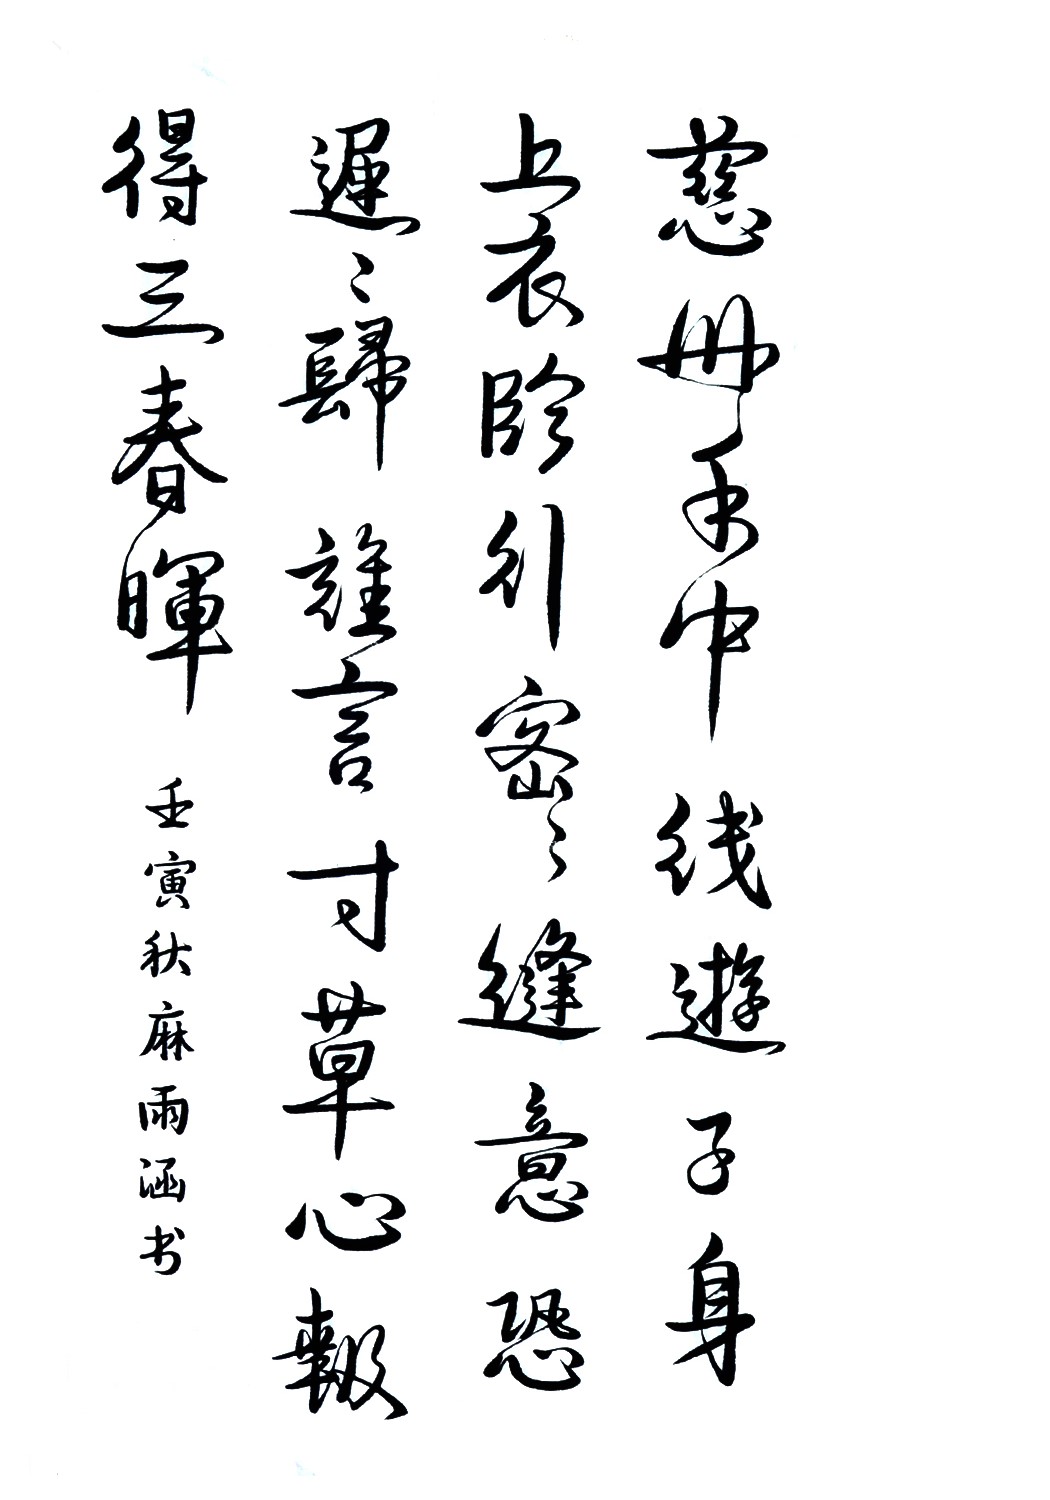 慈母手中线遊子身
上衣临行密〻缝意恐
遲〻歸誰言寸草心報
得三春暉
壬寅秋麻雨涵书